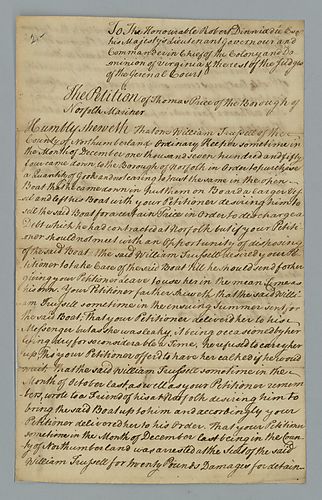 To The Honourable Robert Dinwiddie Esqr
his Majestys Lieutenant Governour and
Commander in Chief of the Colony and Do
minion of Virginia & the rest of the Judges
of the General Court
The Petition of Thomas Price of the Borough of
Norfolk Mariner
Humbly Sheweth That one William Trussell of the
County of Northumberland Ordinary Keeper sometime in
the Month of December one thousand seven hundred and fifty
came down to the Borough of Norfolk in Order to purchase
a Quantity of and not caring to trust the same in the Open
Boat that he came down in put them on Board a larger
and left his Boat with your Petitioner desiring him to
sell the said Boat for a certain Price in Order to discharge a
Debt which he had contracted at Norfolk but if your Petiti
oner should not meet with an Opportunity of disposing
of the said Boat the said William Trussell desired your Pe
titioner to take Care of the Boat till he should send for her
giving your Petitioner leave to use her in the mean time as
his own Your Petitioner farther sheweth that the said Willi
am Trussell sometime in the ensuing Summer sent for
the said Boat, that your Petitioner delivered her to his
Messenger but as she was leaky, it being occasioned by her
laying dry for so considerable a Time, he refused to carry her
up, tho your Petitioner offered to have her calked if he would
wait. That the said William Trussell sometime in the
Month of October last as well as your Petitioner remem
bers, wrote to a Friend of his at Norfolk desiring him to
bring the said Boat up to him and accordingly your
Petitioner delivered her to his Order. That your Petitioner
sometime in the Month of December last being in the Coun
ty of Northumberland was arrested at the Suit of the said
William Trussell for twenty Pounds Damages for detain